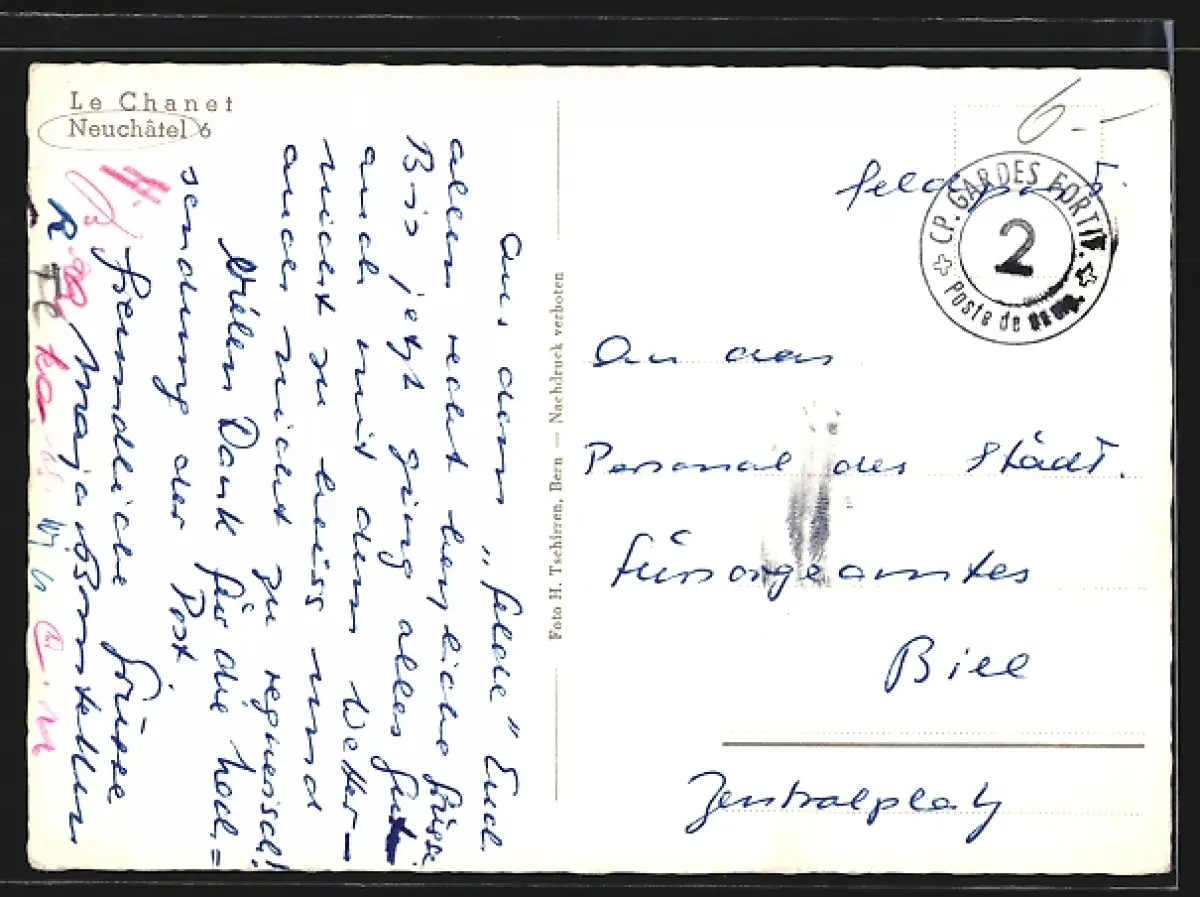 Le Chanet
Neuchâtel 6
6.-
Feldpost.
CP. GARDES FORTIF.
2
Poste de
An das
Personal des Städt.
Fürsorgeamtes
Biel
Zentralplatz
Foto H. Tschirren, Bern — Nachdruck verboten
Aus dem „Felde" Euch
allen recht herzliche Grüsse
Bis jetzt ging alles gut
auch mit dem Wetter –
nicht zu heiss und
auch nicht zu regnerisch!
Vielen Dank für die Nach=
sendung der Post.
Freundliche Grüsse
Maja